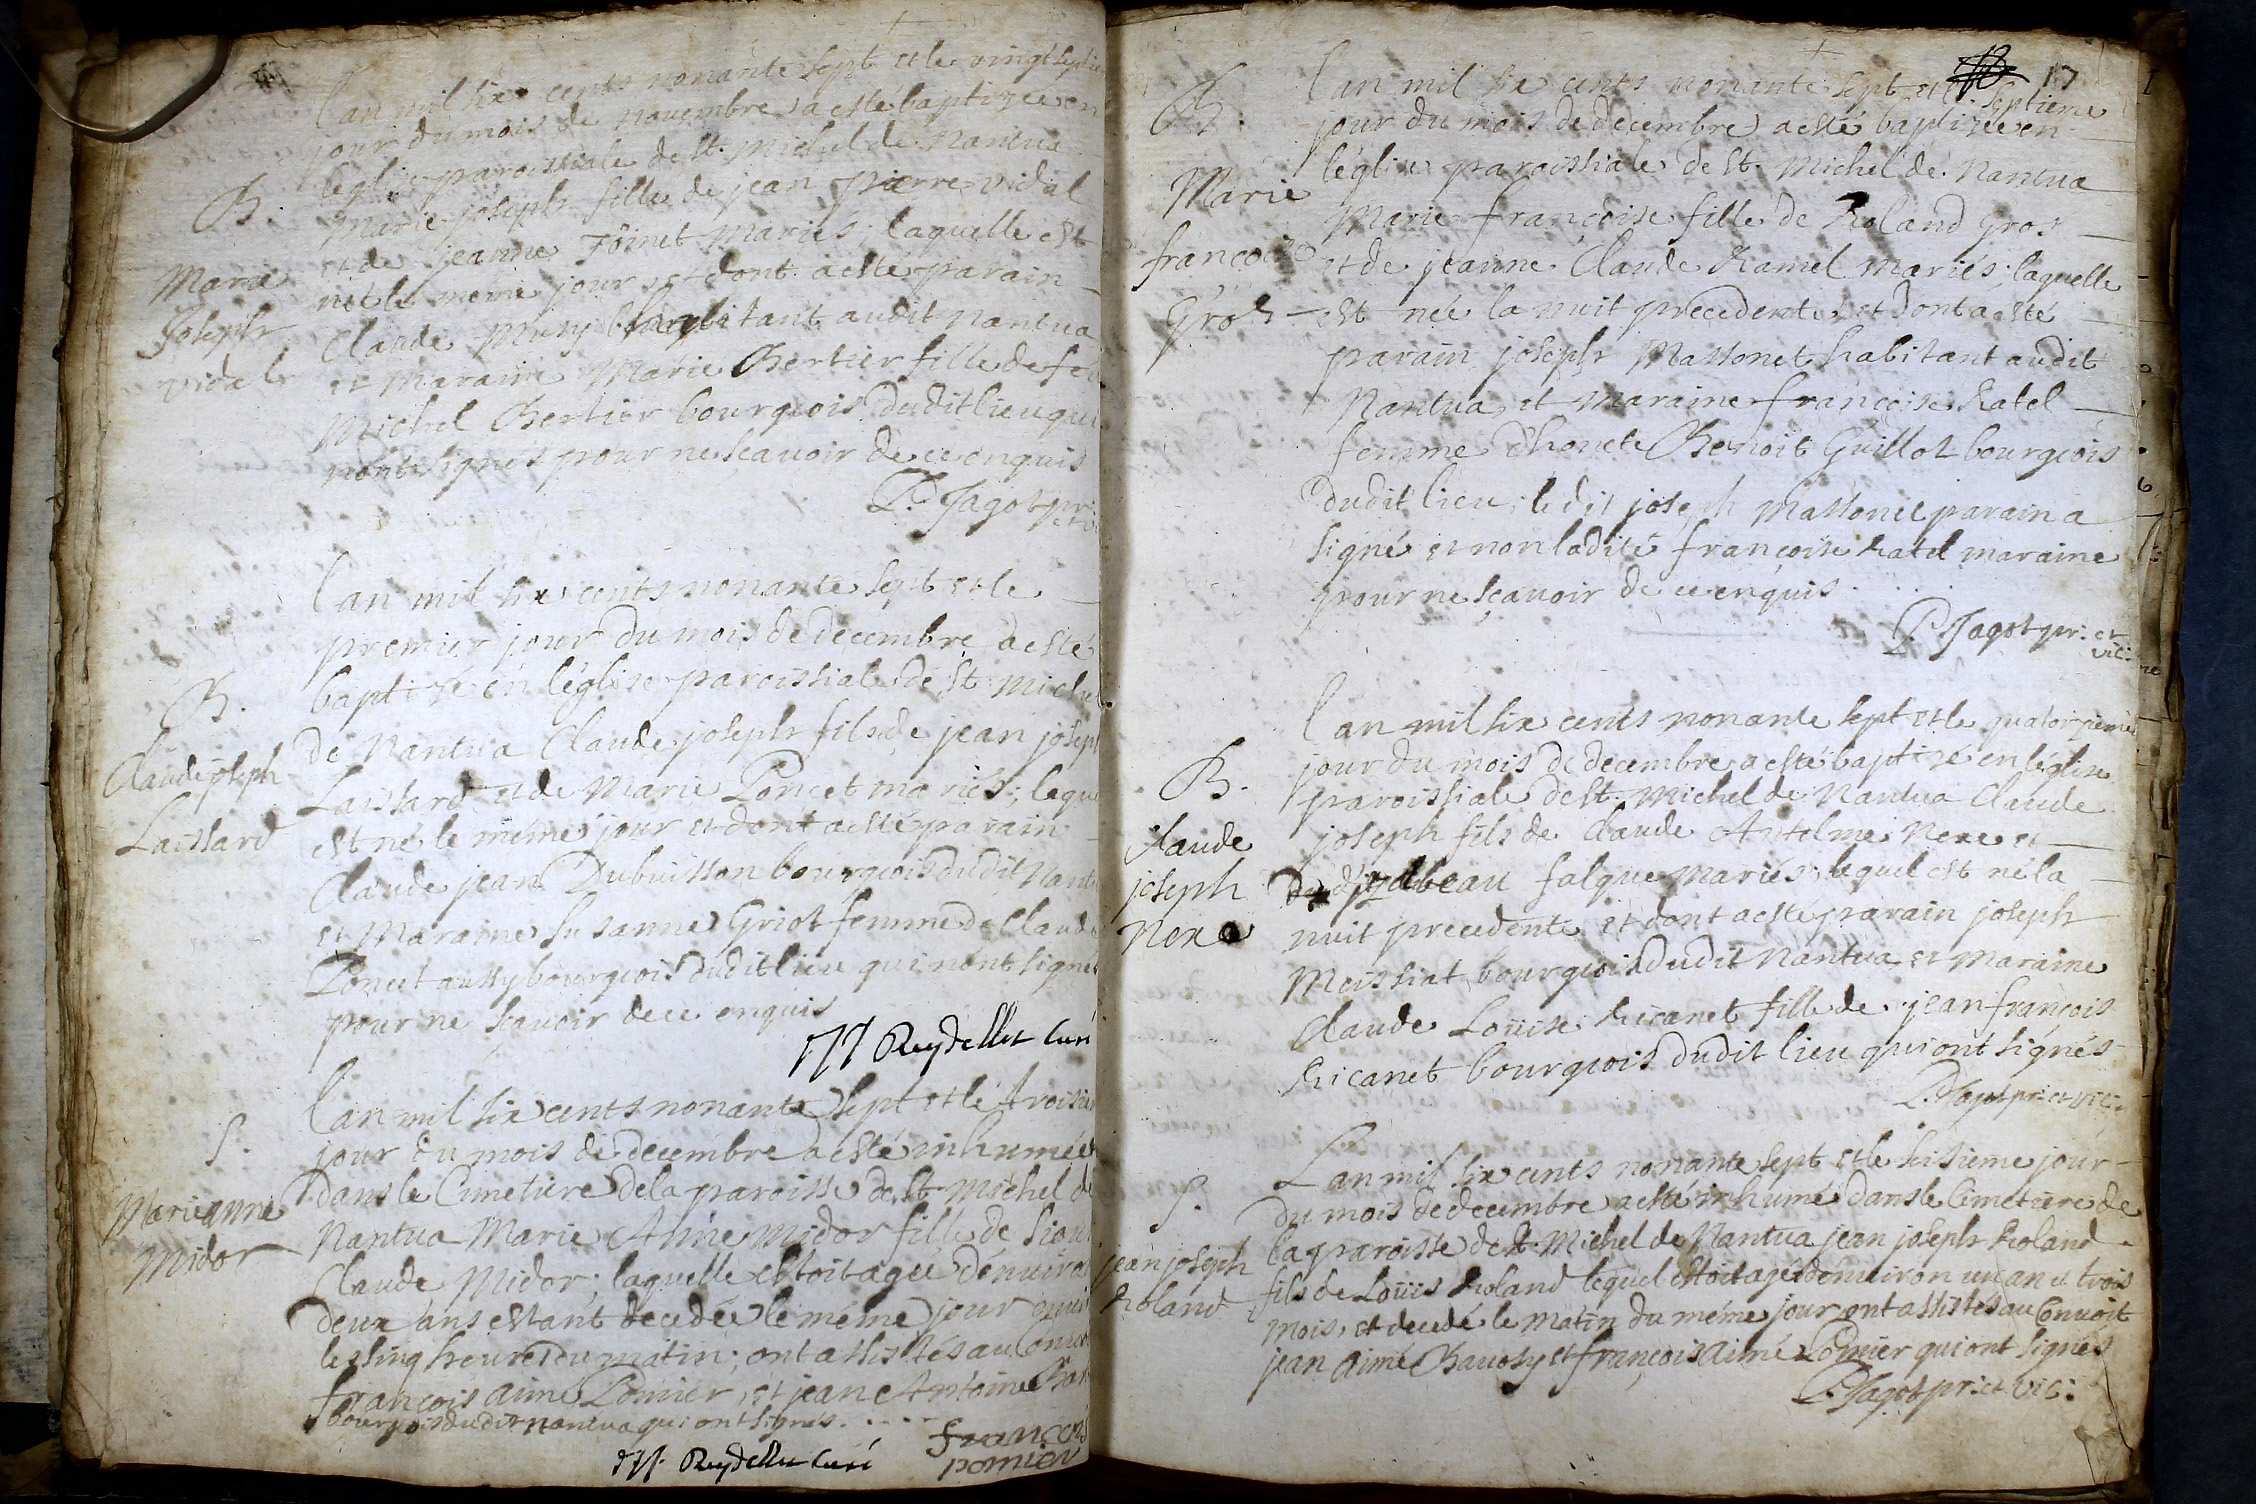 Lan mil six cents nonante sept et le vingt septie
jour du mois de novembre a esté baptizee en
léglise paroissiale de St. Michel de Nantua
B.
Marie joseph fille de jean pierre vidal
et de jeanne Toinet Mariés; laquelle est
Maria
Joseph
vidal
le meme jour et dont a esté parain
Claude habitant audit nantua
et Maraine Marie Bertier fille de feu
Michel Bertier bourgeois dudit lieu qui
nont signés pour ne scavoir de ce enquis
P. Jagot pr.
Lan mil six cents nonante sept et le
premier jour du mois de decembre a esté
B.
baptizé en léglise paroissiale de St Michel
Claude joseph
Laissard
de Nantua Claude joseph fils de jean joseph
Laissard et de Marie Poncet mariés; leque
est né le même jour et dont a esté parain
Claude jean Dubuisson bourgeois dudit Nant
et Maraine Susanne Griot femme de Claude
Poncet aussy bourgeois dudit lieu qui nont signé
pour ne sçavoir de ce enquis
Reydellet Curé
Lan mil six cents nonante sept et le troisie
S.
jour du mois de decembre a esté inhumée
Marie anne
Midor
dans le Cimetiere de la paroisse de St Michel de
Nantua Marie Anne Midor fille de Sieur
Claude Midor; laquelle estoit agée denviro
deux ans estant decedée le même jour envi
les sinq heures du matin; ont assistés au Convoi
françois aimé Pomier, et jean Antoine
bourgeois dudit nantua qui ont signés....
françois
pomier
Reydellet Curé
17
B.
Marie
françoise
Gros
Lan mil six cents nonante sept et le septieme
jour du mois de decembre a esté baptizée en
léglise paroissiale de St. Michel de Nantua
Marie françoise fille de Roland Gros
et de jeanne Claude Ramel mariés; laquelle
est née la nuit precedente, et dont a esté
parain joseph Massonet habitant audit
Nantua, et maraine françoise Ratel
femme dhonete Benoit Guillot bourgeois
dudit lieu; le dit joseph Massonet parain a
signé et non ladite françoise Ratel maraine
pour ne sçavoir de ce enquis.
P. Jagot pr: et
vic:
Lan mil six cents nonante sept et le quatorzieme
B.
claude
joseph
Nexe
jour du mois de decembre a esté baptizé en léglise
paroissiale de St. Michel de Nantua Claude
joseph fils de Claude Antelme Nexe et
ysabeau falque mariés; lequel est né la
nuit precedente et dont a esté parain joseph
Meissiat bourgeois dudit Nantua, et Maraine
Claude Loüise Ricanet fille de jean françois
Ricanet bourgeois dudit lieu qui ont signés
P. Jagot pr: et vic:
Lan mil six cents nonante sept et le seisieme jour
S.
jean joseph
Roland
du mois de decembre a esté inhumé dans le Cimetiere de
la paroisse de St. Michel de Nantua jean joseph Roland
fils de Loüis Roland lequel estoit agé denviron un an et trois
Mois, et decedé le matin du même jour, ont assistés au Convoit
jean aimé et françois aimé Pomier qui ont signés
P. Jagot pr: et vic: